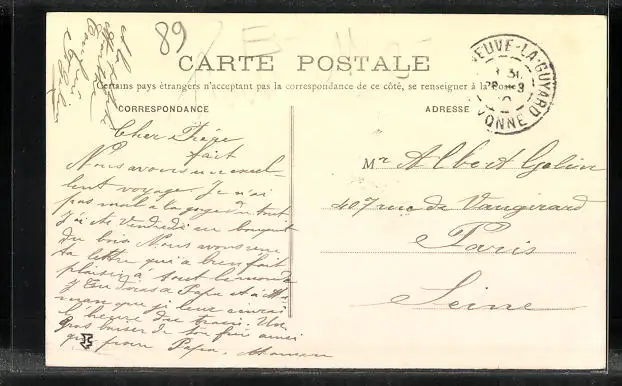 89
CARTE POSTALE
Certains pays étrangers n'acceptant pas la correspondance de ce côté, se renseigner à la Poste
CORRESPONDANCE
ADRESSE
NEUVE-LA-GUYARD
YONNE
Cher Frère
Nous avons fait un excel-
lent voyage. Je n'ai
pas mal à la gorge du tout.
J'ai été Vendredi au bouquet
du bois. Nous avons reçu
ta lettre qui a bien fait
plaisir à tout le monde
Tu diras à Papa et à Ma-
man que je leur
l'heure du train. Un
gros baiser de ton frère ainsi
que pour Papa, Maman
Mr Albert Gelin
407 rue de Vaugirard
Paris
Seine